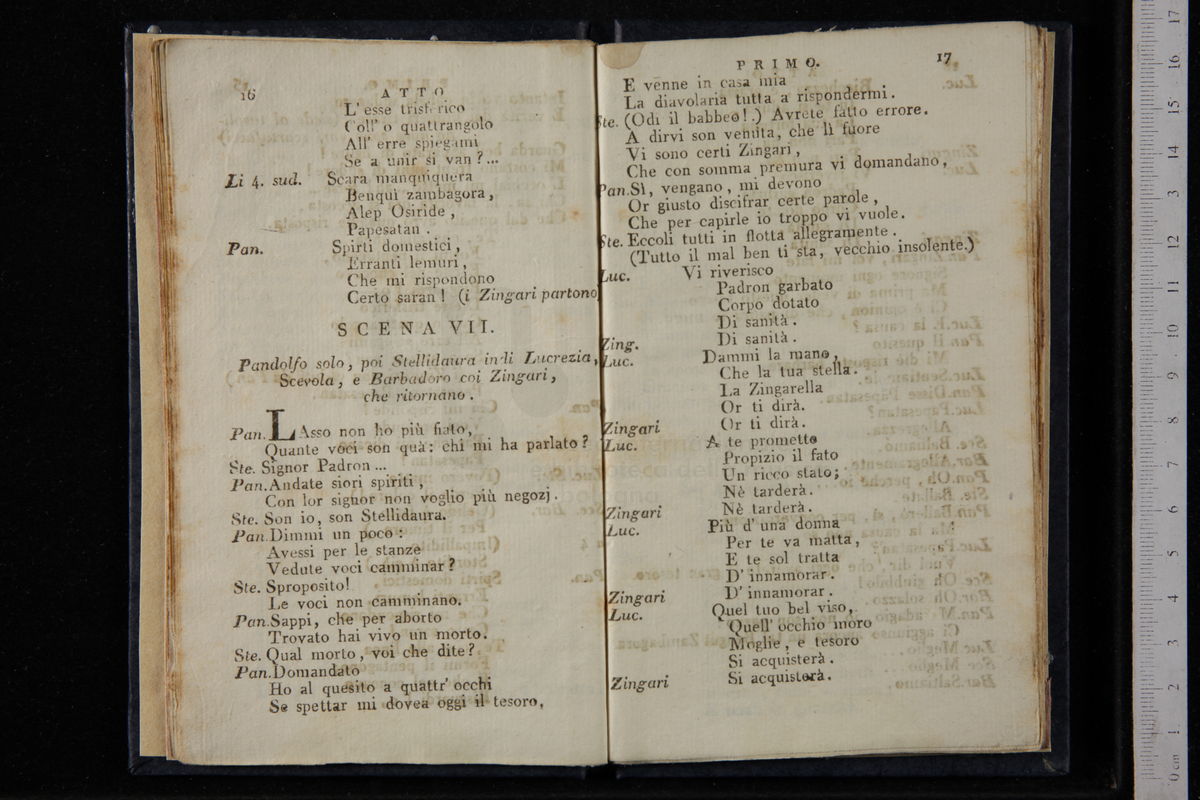 16
ATTO
L' esse trisferico
Coll' o quattrangolo
All' erre spiegami
Se a unir si van ?...
Li 4. sud. Scara manquiquera
Benqui zambagora,
Alep Osiride,
Papesatan.
Pan. Spirti domestici,
Erranti lemuri,
Che mi rispondono
Certo saran! (i Zingari partono
SCENA VII.
Pandolfo solo, poi Stellidaura indi Lucrezia,
Scevola, e Barbadoro coi Zingari,
che ritornano.
Pan. LAsso non ho più fiato,
Quante voci son quà: chi mi ha parlato?
Ste. Signor Padron ...
Pan. Andate siori spiriti,
Con lor signor non voglio più negozj.
Ste. Son io, son Stellidaura.
Pan. Dimmi un poco:
Avessi per le stanze
Vedute voci camminar?
Ste. Sproposito!
Le voci non camminano.
Pan. Sappi, che per aborto
Trovato hai vivo un morto.
Ste. Qual morto, voi che dite?
Pan. Domandato
Ho al quesito a quattr' occhi
Se spettar mi dovea oggi il tesoro,
PRIMO.
17
E venne in casa mia
La diavolaria tutta a rispondermi.
Ste. (Odi il babbeo!.) Avrete fatto errore.
A dirvi son venuta, che lì fuore
Vi sono certi Zingari,
Che con somma premura vi domandano,
Pan. Sì, vengano, mi devono
Or giusto discifrar certe parole,
Che per capirle io troppo vi vuole.
Ste. Eccoli tutti in flotta allegramente.
(Tutto il mal ben ti sta, vecchio insolente.)
Luc. Vi riverisco
Padron garbato
Corpo dotato
Di sanità.
Zing. Di sanità.
Luc. Dammi la mano,
Che la tua stella.
La Zingarella
Or ti dirà.
Zingari Or ti dirà.
Luc. A te promette
Propizio il fato
Un ricco stato;
Nè tarderà.
Zingari Nè tarderà.
Luc. Più d' una donna
Per te va matta,
E te sol tratta
D' innamorar.
Zingari D' innamorar.
Luc. Quel tuo bel viso,
Quell' occhio moro
Moglie, e tesoro
Si acquisterà.
Zingari Si acquisterà.